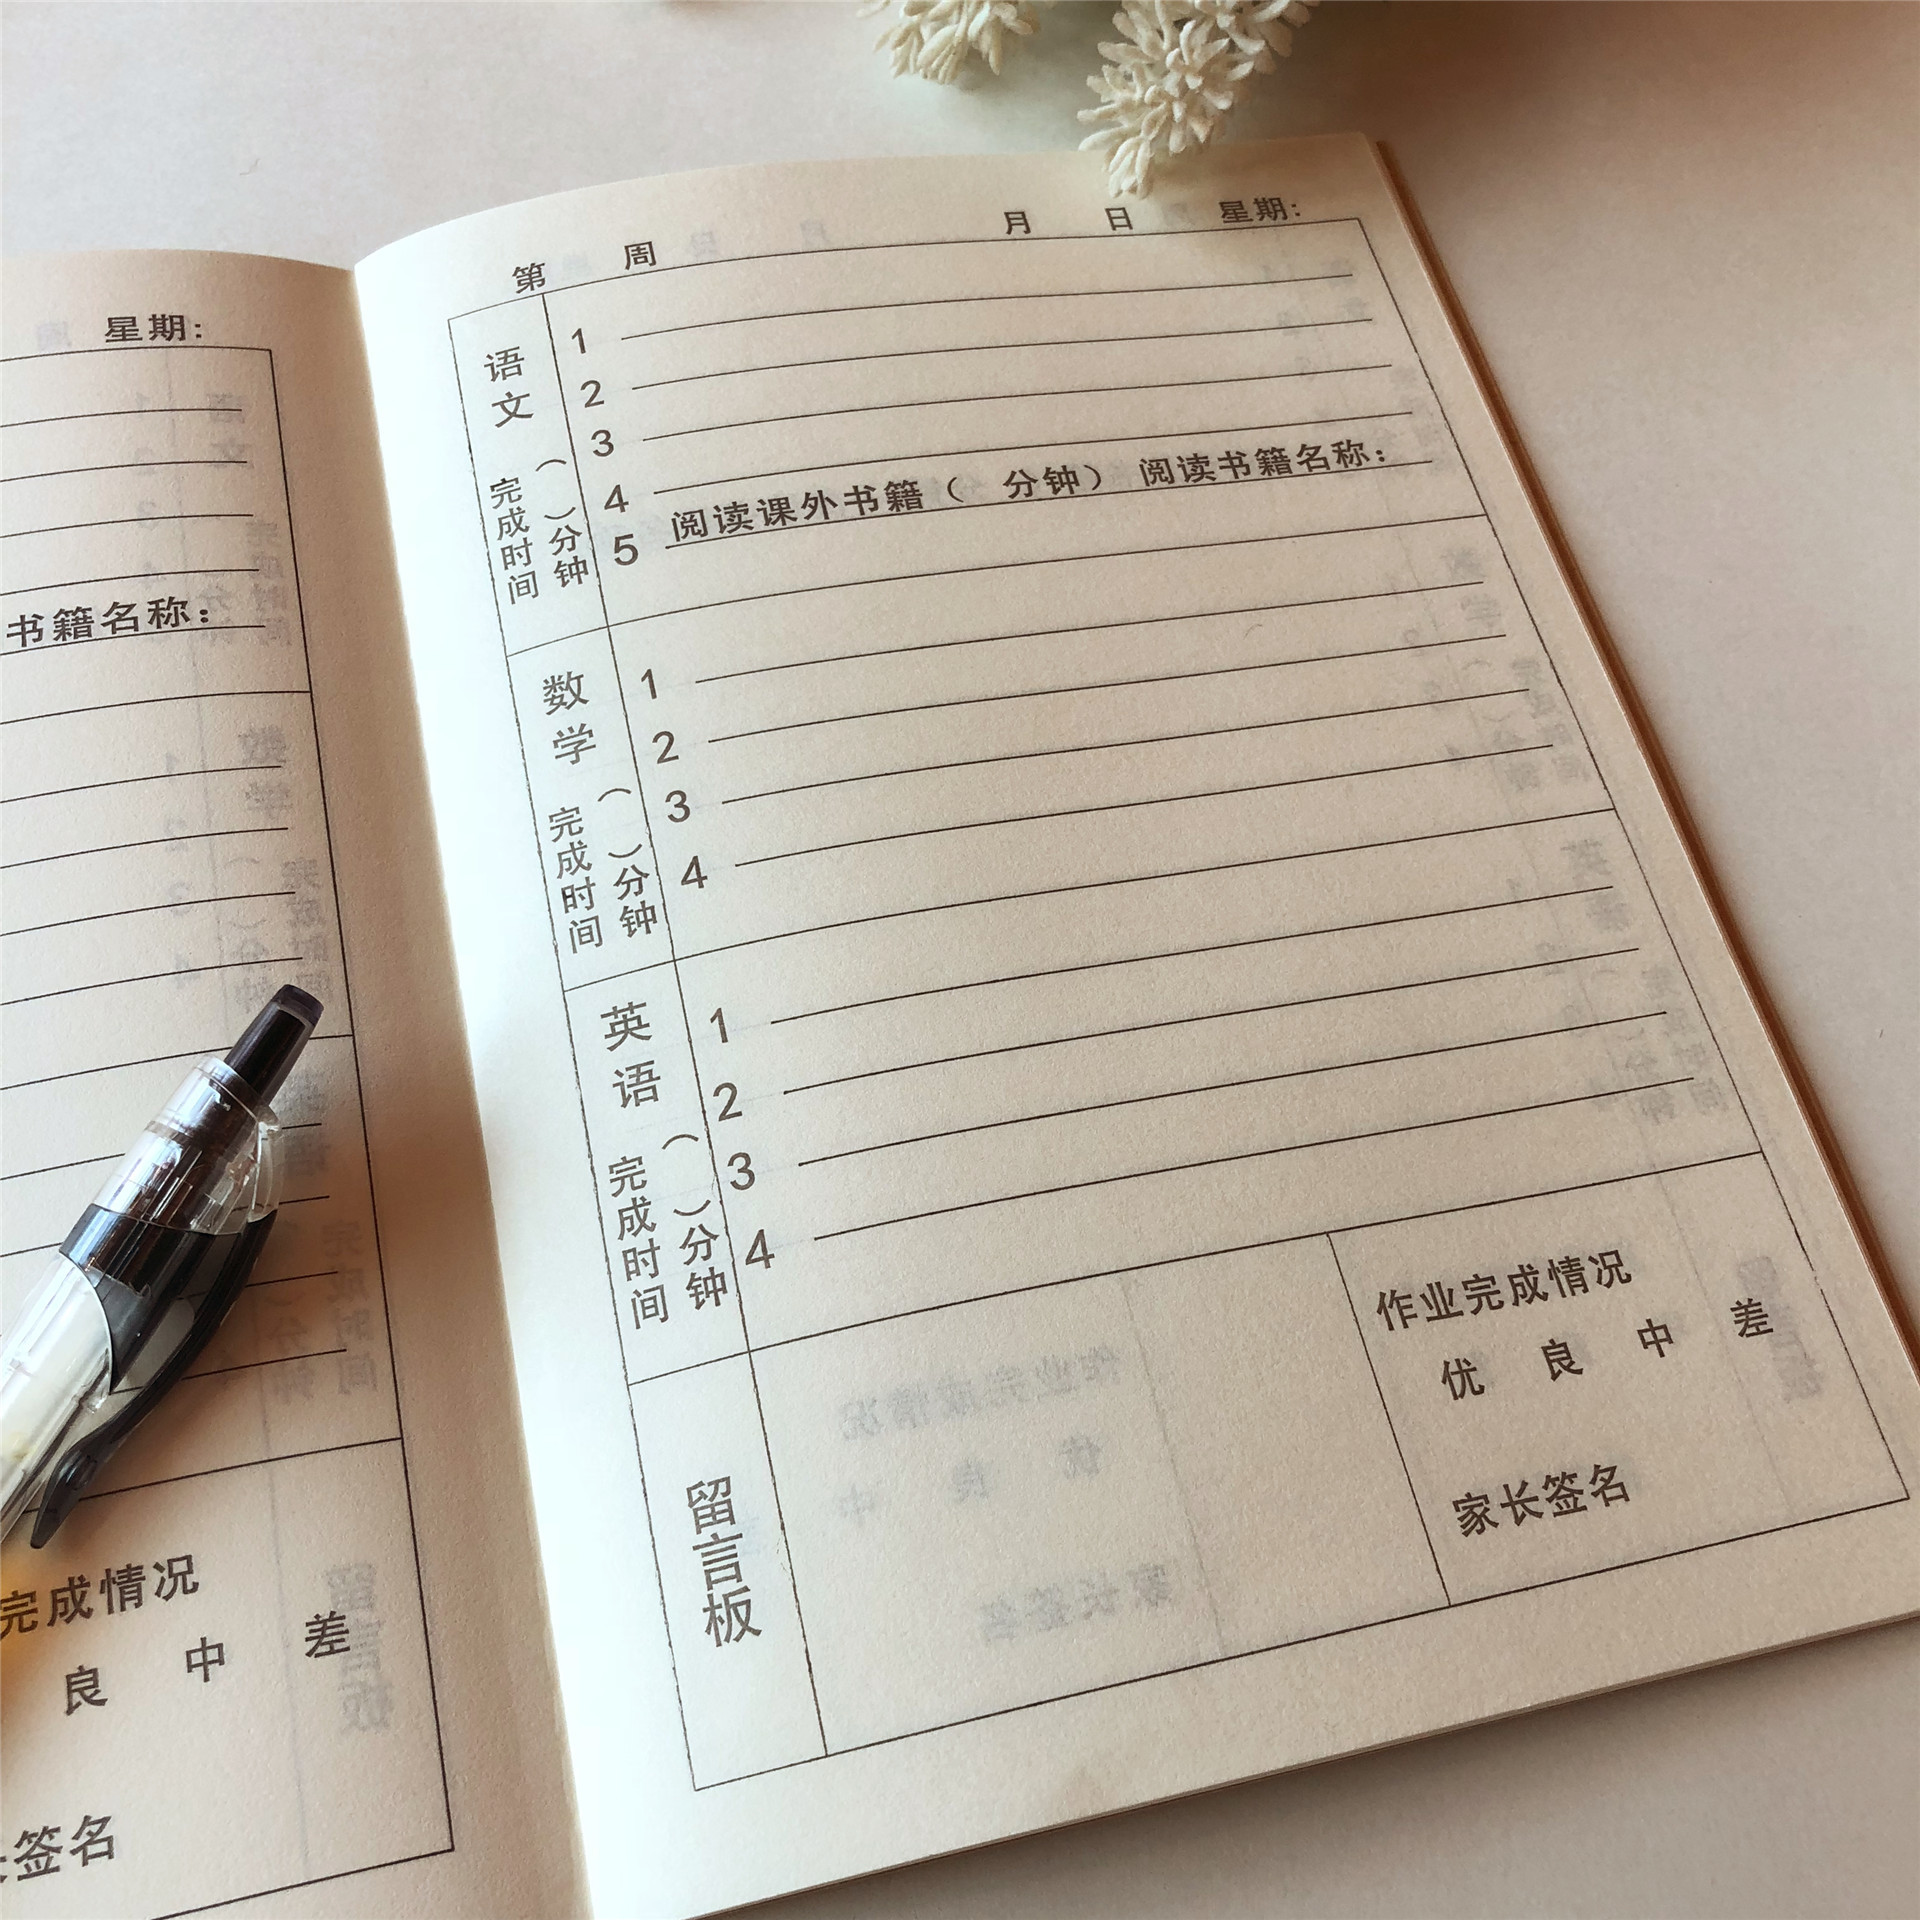 星期:
书籍名称:
完成情况
良 中 差
签名
第 周 月 日 星期:
语文
完成时间
( )分钟
1
2
3
4
5 阅读课外书籍( 分钟) 阅读书籍名称:
数学
完成时间
( )分钟
1
2
3
4
英语
完成时间
( )分钟
1
2
3
4
留言板
作业完成情况
优 良 中 差
家长签名